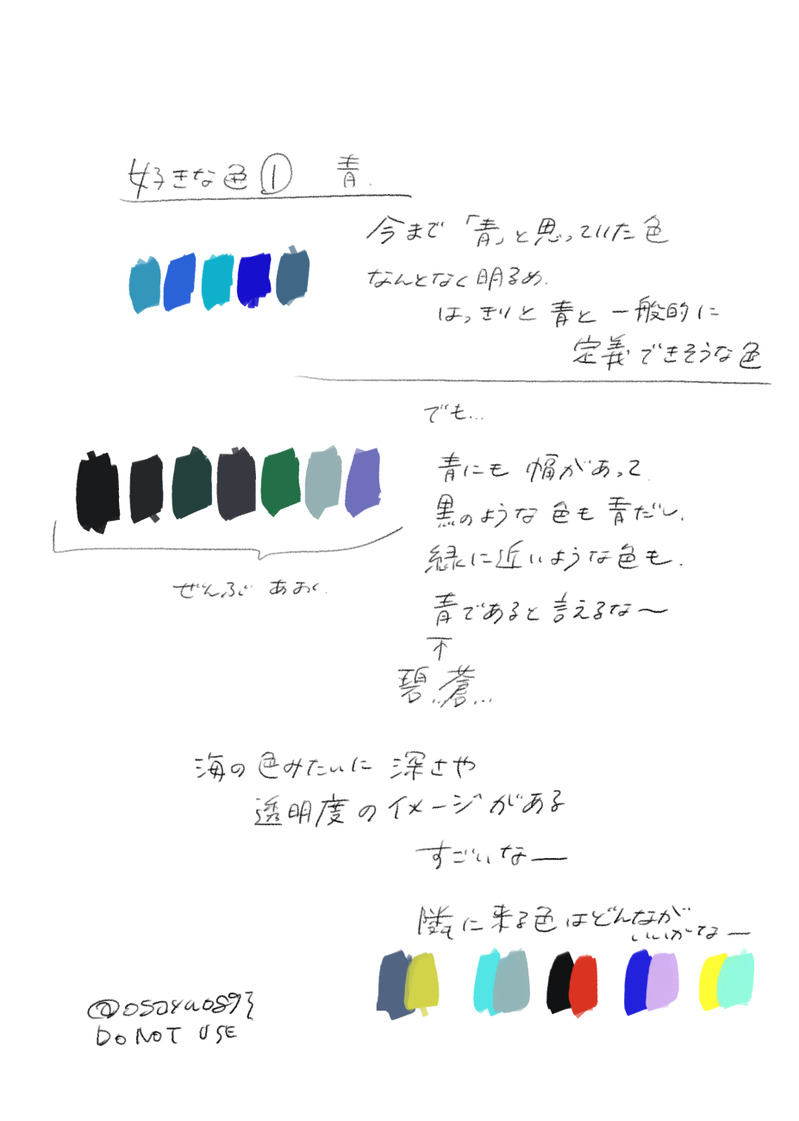 好きな色① 青.
今まで「青」と思っていた色
なんとなく明るめ.
はっきりと青と一般的に
定義できそうな色
でも...
青にも幅があって
黒のような色も青だし、
緑に近いような色も、
青であると言えるな〜
碧、蒼...
ぜんぶあお
海の色みたいに深さや
透明度のイメージがある
すごいなー
隣に来る色はどんなが
いいかなー
DO NOT USE